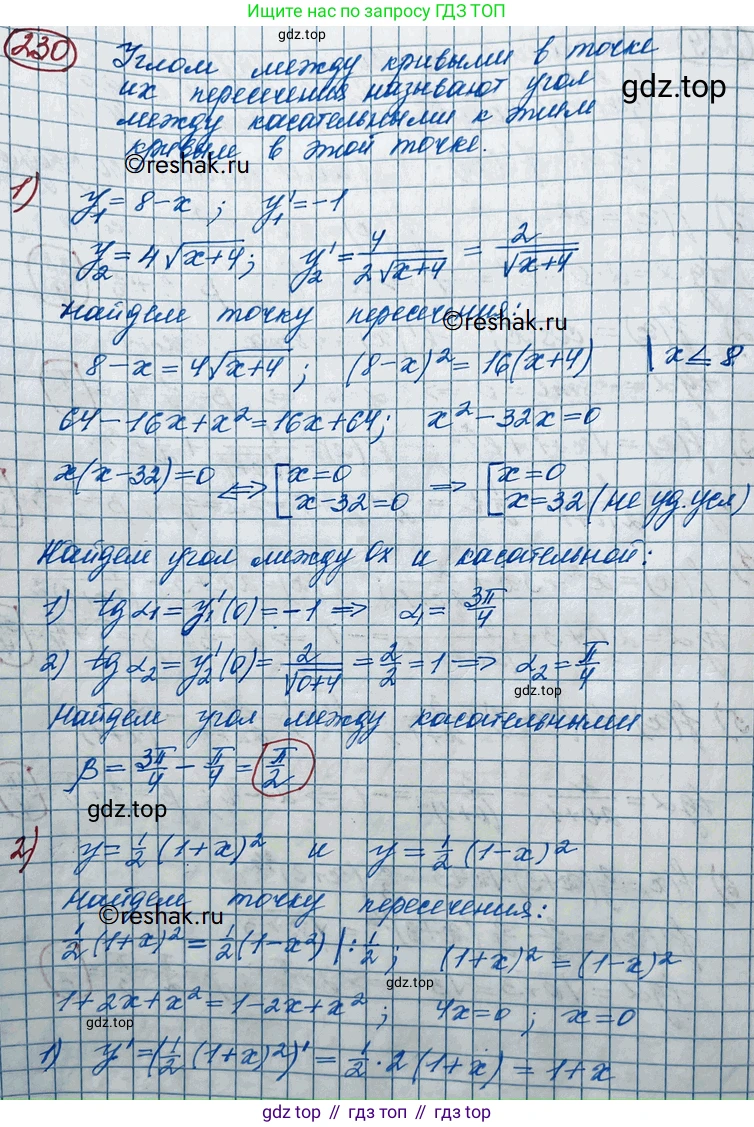 Больше решений по запросу ГДЗ ТОП
230
Углом между кривыми в точке
gdz.top
их пересечения называют угол
gdz.top
между касательными к этим
кривым в этой точке.
©reshak.ru
1)
y₁ = 8 - x ; y₁' = -1
y₂ = 4√(x+4); y₂' = 4/(2√(x+4)) = 2/√(x+4)
Найдем точку пересечения:
©reshak.ru
8 - x = 4√(x+4) ; (8-x)² = 16(x+4) | x ≤ 8
64 - 16x + x² = 16x + 64; x² - 32x = 0
x(x-32) = 0 ⇔ [x = 0 ⇒ [x = 0
x - 32 = 0 x = 32 (не уд. усл)
Найдем угол между Ox и касательной:
1) tg α₁ = y₁'(0) = -1 ⇒ α₁ = 3π/4
2) tg α₂ = y₂'(0) = 2/√(0+4) = 2/2 = 1 ⇒ α₂ = π/4
gdz.top
Найдем угол между касательными
β = 3π/4 - π/4 = π/2
gdz.top
2) y = 1/2 (1+x)² и y = 1/2 (1-x)²
Найдем точку пересечения:
©reshak.ru
1/2 (1+x)² = 1/2 (1-x²) | : 1/2 ; (1+x)² = (1-x)²
gdz.top
1 + 2x + x² = 1 - 2x + x² ; 4x = 0 ; x = 0
gdz.top
1) y' = (1/2 (1+x)²)' = 1/2 · 2 (1+x) = 1 + x
gdz.top // гдз топ // гдз.топ